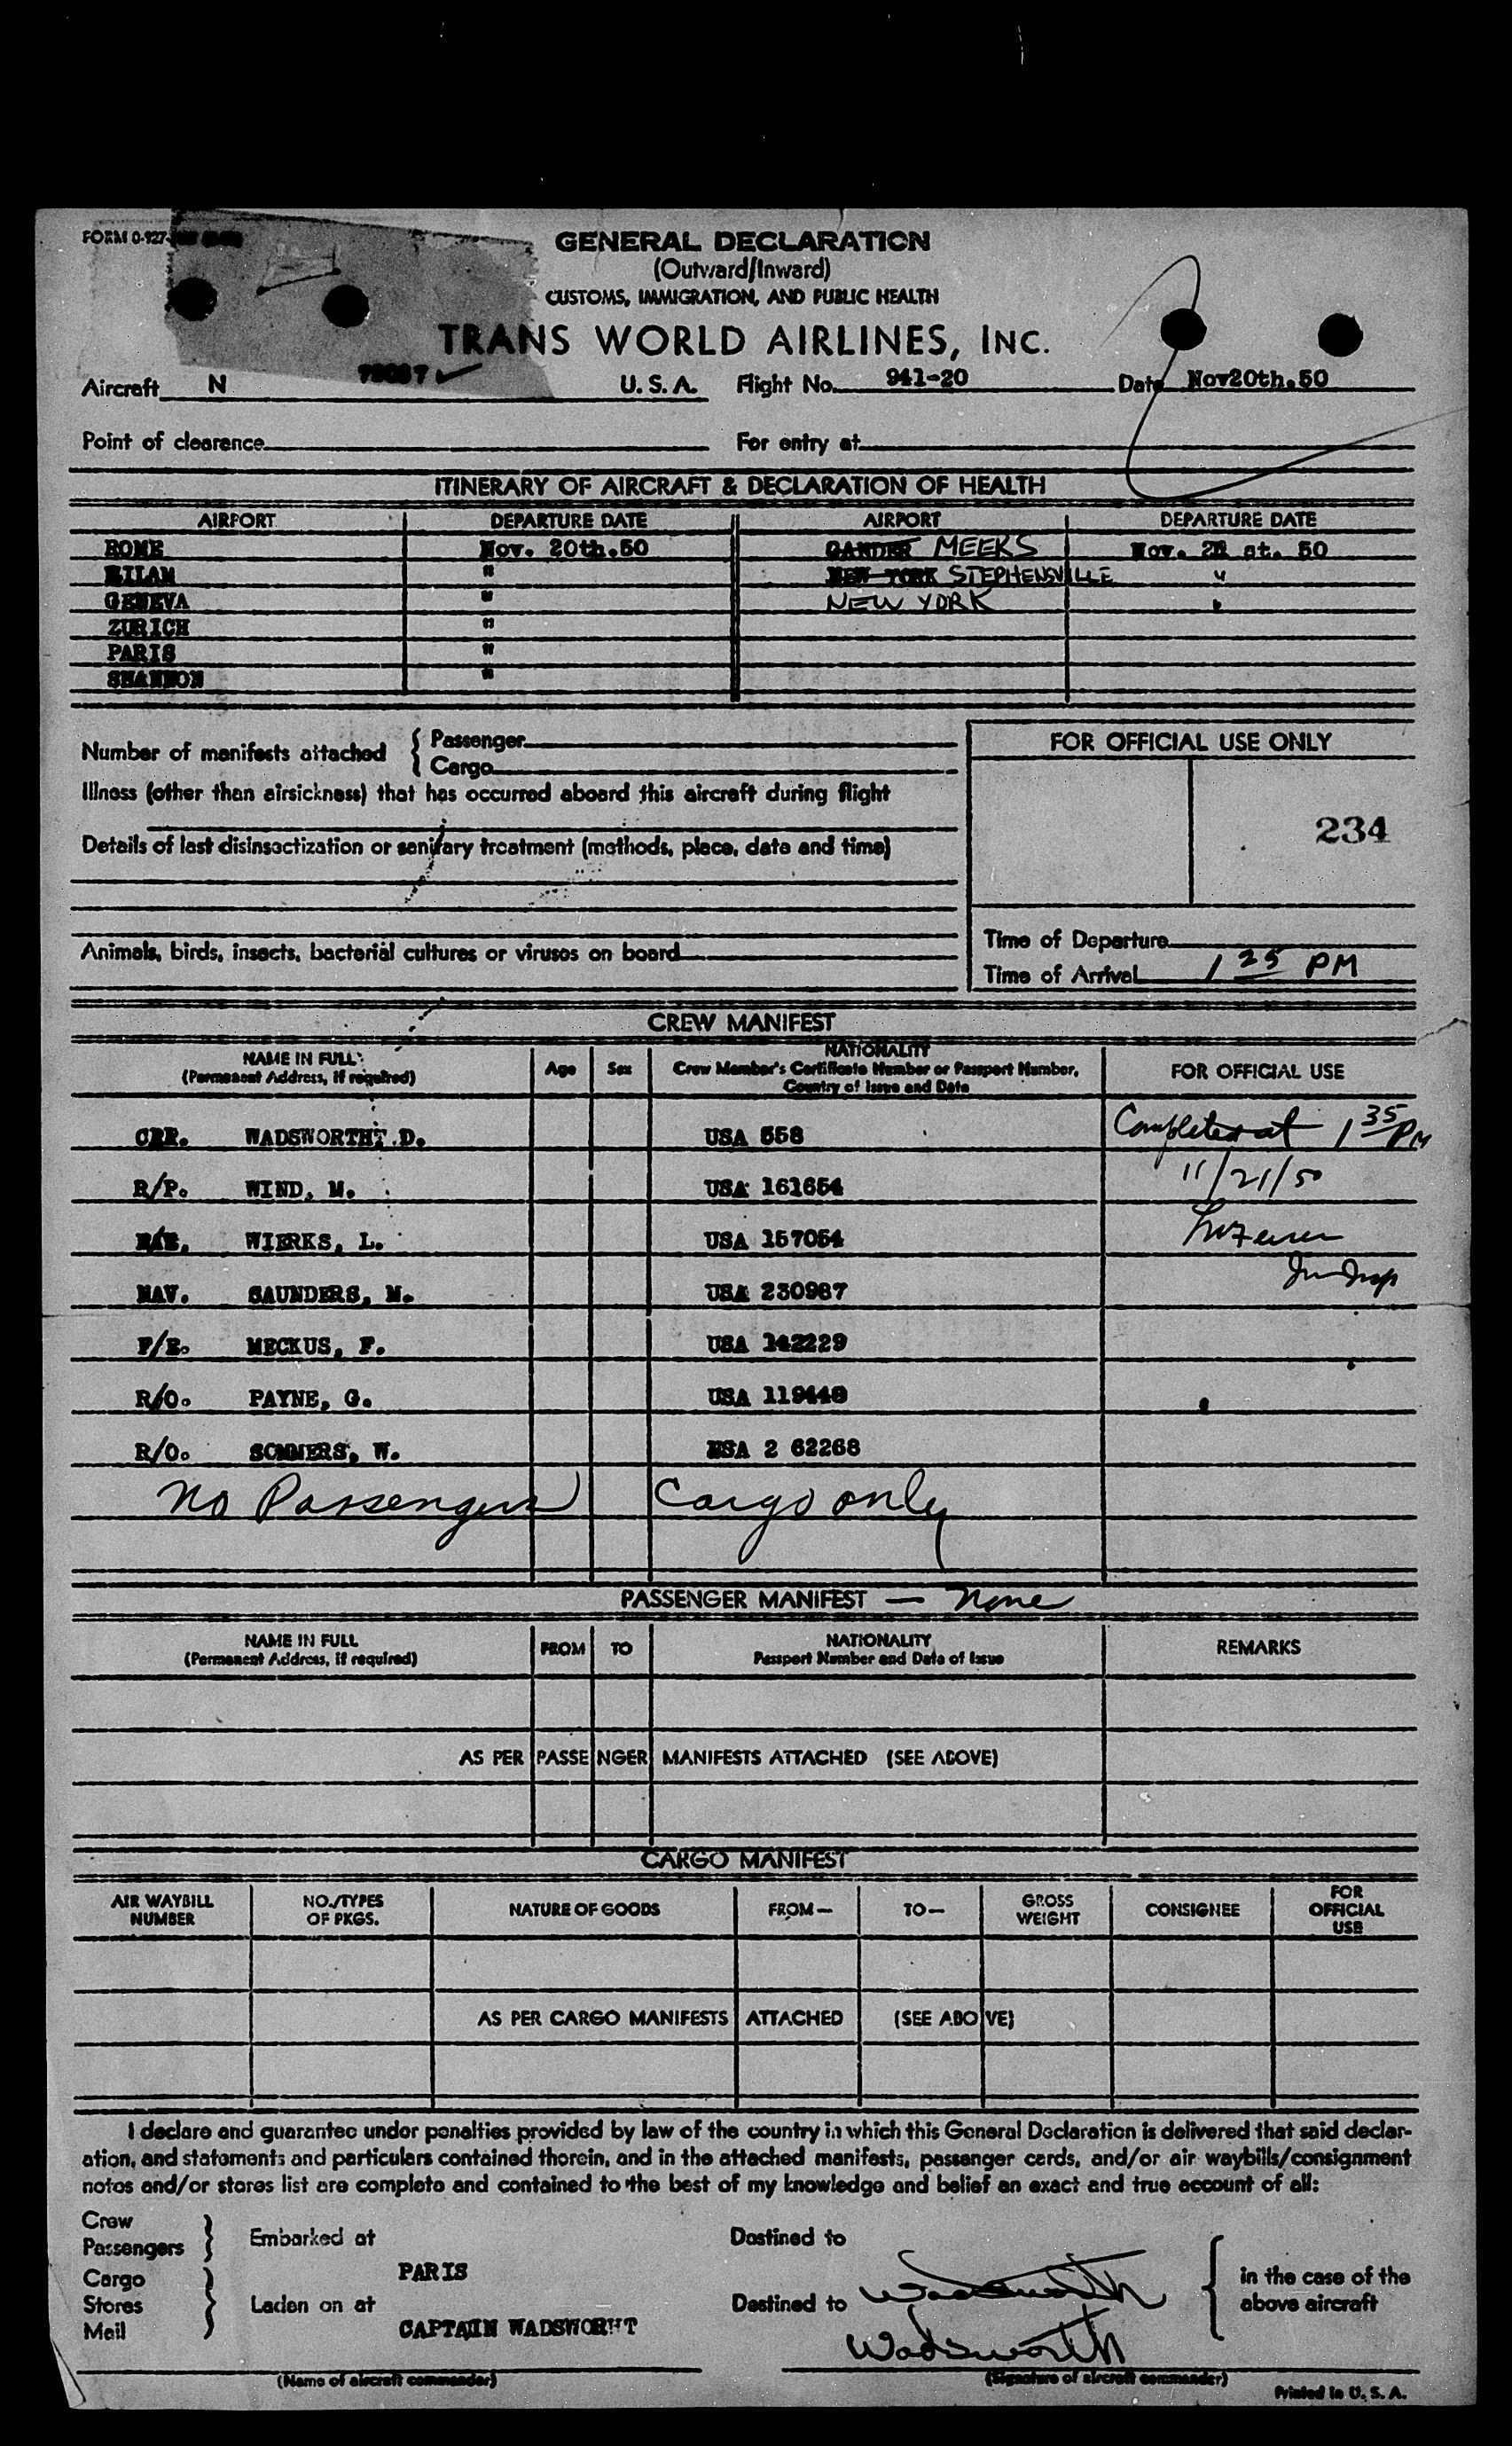 FORM 0-927-
GENERAL DECLARATION
(Outward/Inward)
CUSTOMS, IMMIGRATION, AND PUBLIC HEALTH
TRANS WORLD AIRLINES, INC.
Aircraft N U. S. A. Flight No. 941-20 Date Nov20th.50
Point of clearence For entry at
ITINERARY OF AIRCRAFT & DECLARATION OF HEALTH
AIRPORT DEPARTURE DATE AIRPORT DEPARTURE DATE
ROME Nov. 20th.50 GANDER MEEKS Nov. 21 st. 50
MILAN " NEW YORK STEPHENSVILLE "
GENEVA " NEW YORK "
ZURICH "
PARIS "
SHANNON "
Number of manifests attached { Passenger
Cargo
Illness (other than airsickness) that has occurred aboard this aircraft during flight
Details of last disinsectization or sanitary treatment (methods, place, date and time)
Animals, birds, insects, bacterial cultures or viruses on board
FOR OFFICIAL USE ONLY
234
Time of Departure
Time of Arrival 1 25 PM
CREW MANIFEST
NAME IN FULL (Permanent Address, if required) Age Sex NATIONALITY Crew Member's Certificate Number or Passport Number, Country of Issue and Date FOR OFFICIAL USE
WADSWORTH, D. USA 558 Completed at 1 35 PM
R/P. WIND, M. USA 161654 11/21/50
WIERKS, L. USA 157054
NAV. SAUNDERS, M. USA 230987 Im Insp
F/E. MECKUS, F. USA 142229
R/O. PAYNE, G. USA 119448
R/O. SOMMERS, W. USA 2 62268
No Passengers Cargo only
PASSENGER MANIFEST — None
NAME IN FULL (Permanent Address, if required) FROM TO NATIONALITY Passport Number and Date of Issue REMARKS
AS PER PASSENGER MANIFESTS ATTACHED (SEE ABOVE)
CARGO MANIFEST
AIR WAYBILL NUMBER NO./TYPES OF PKGS. NATURE OF GOODS FROM— TO— GROSS WEIGHT CONSIGNEE FOR OFFICIAL USE
AS PER CARGO MANIFESTS ATTACHED (SEE ABOVE)
I declare and guarantee under penalties provided by law of the country in which this General Declaration is delivered that said declar-
ation, and statements and particulars contained therein, and in the attached manifests, passenger cards, and/or air waybills/consignment
notes and/or stores list are complete and contained to the best of my knowledge and belief an exact and true account of all:
Crew
Passengers } Embarked at Destined to
PARIS Wadsworth
Cargo
Stores } Laden on at Destined to
Mail
{ in the case of the
above aircraft
CAPTAIN WADSWORHT Wadsworth
(Name of aircraft commander) (Signature of aircraft commander)
Printed in U. S. A.